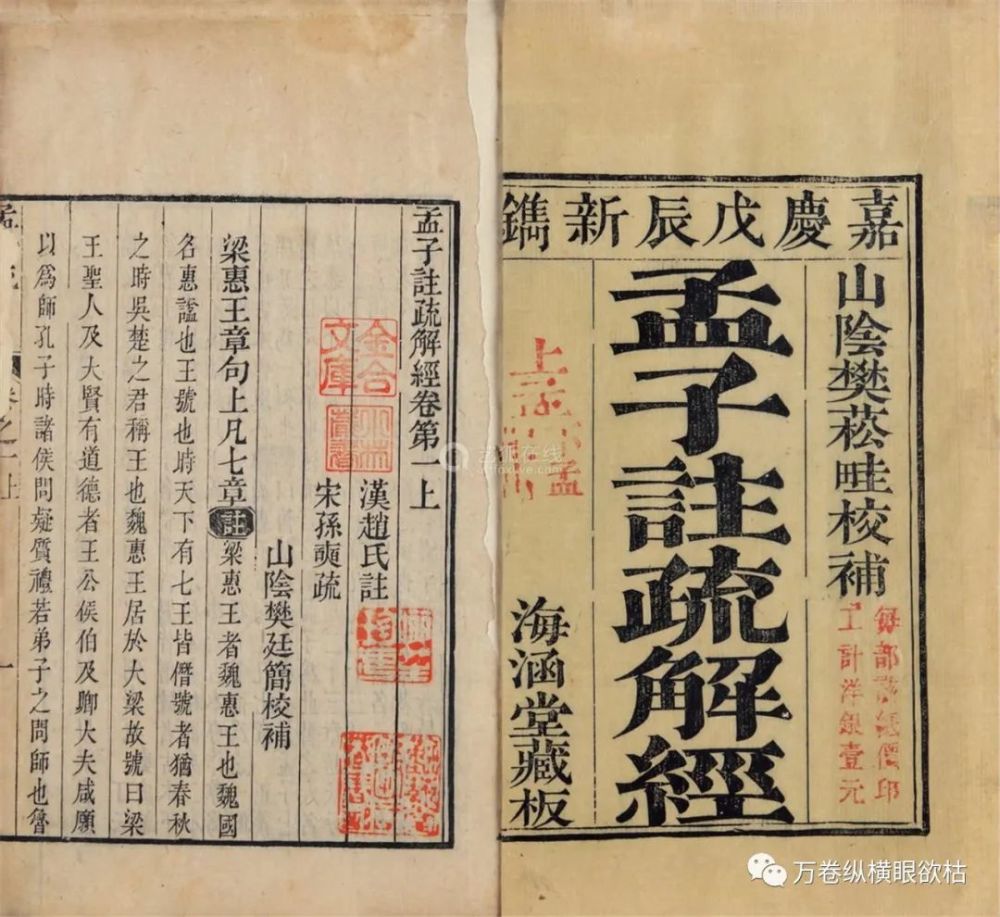 嘉慶戊辰新鐫
山陰樊菘畦校補
孟子註疏解經
海涵堂藏板
工計洋銀壹元
孟子註疏解經卷第一上
漢趙氏註
宋孫奭疏
山陰樊廷簡校補
梁惠王章句上凡七章註梁惠王者魏惠王也魏國
名惠謚也王號也時天下有七王皆僭號者猶春秋
之時吳楚之君稱王也魏惠王居於大梁故號曰梁
王聖人及大賢有道德者王公侯伯及卿大夫咸願
以爲師孔子時諸侯問疑質禮若弟子之問師也魯
金合
文庫
万卷纵横眼欲枯